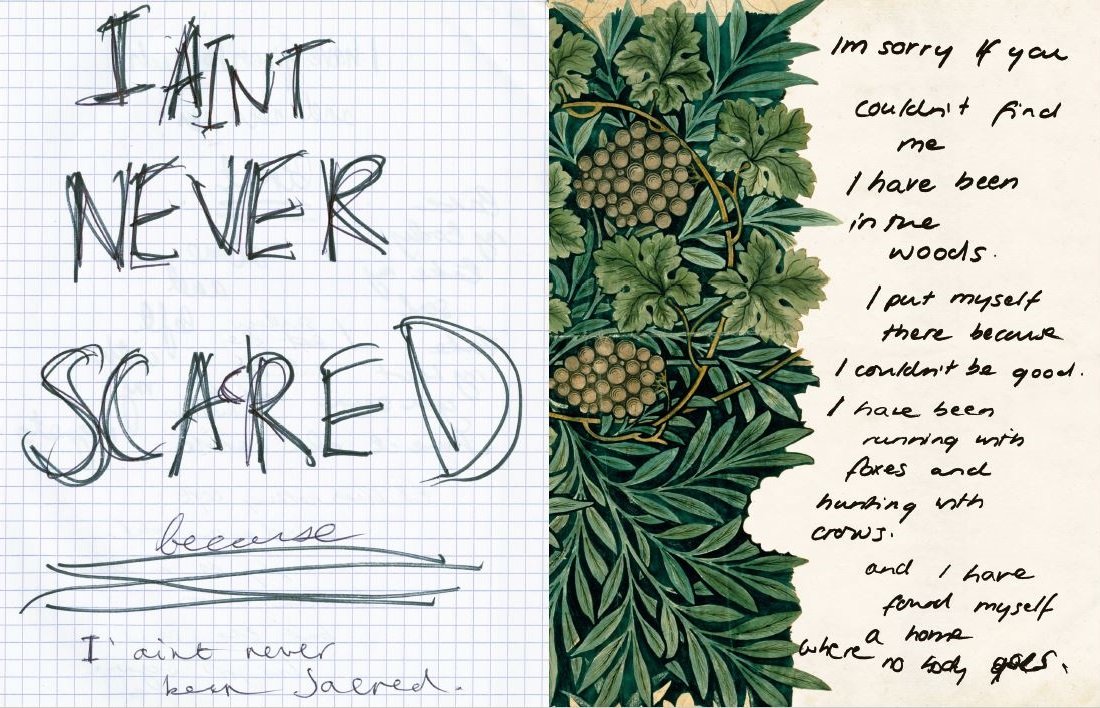 I AINT
NEVER
SCARED
because
I aint never
been Sacred.
Im sorry if you
couldn't find
me
I have been
in the
woods.
I put myself
there because
I couldn't be good.
I have been
running with
foxes and
hunting with
crows.
and I have
found myself
a home
where no body goes.